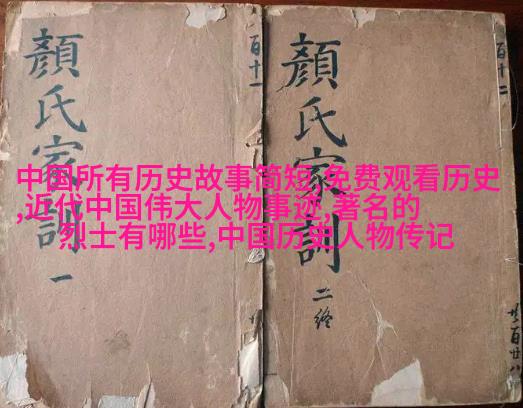 顏氏家訓 一
百十一
顏氏家訓 二終
百十二
中国所有历史故事简短,免费观看历史
,近代中国伟大人物事迹,著名的
烈士有哪些,中国历史人物传记